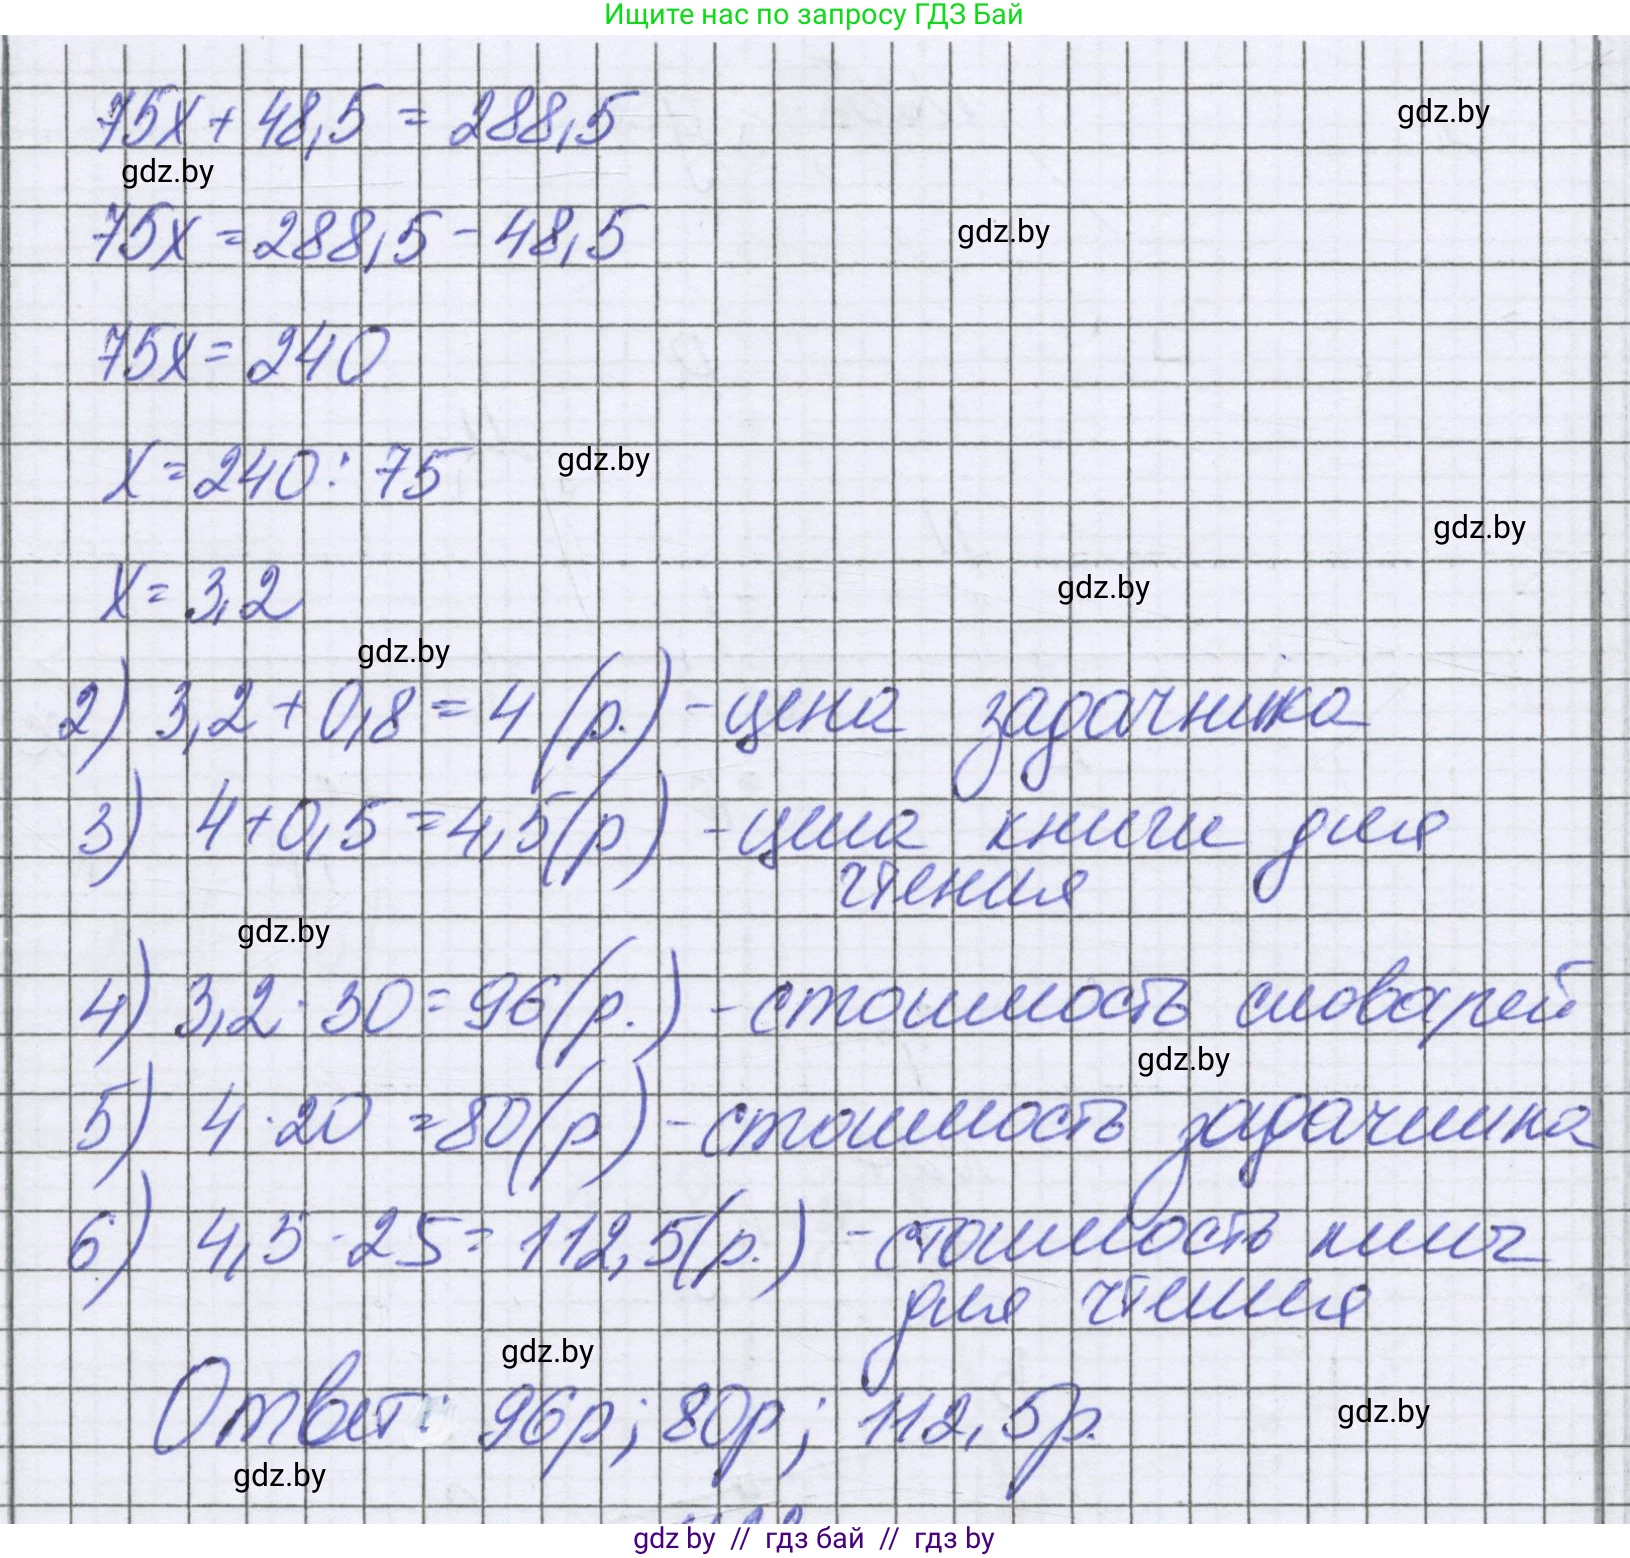 Ищите нас по запросу ГДЗ Бай
75x + 48,5 = 288,5
gdz.by
gdz.by
75x = 288,5 - 48,5
gdz.by
75x = 240
x = 240 : 75
gdz.by
gdz.by
x = 3,2
gdz.by
gdz.by
2) 3,2 + 0,8 = 4 (р.) - цена задачника
3) 4 + 0,5 = 4,5 (р) - цена книги для
чтения
gdz.by
4) 3,2 · 30 = 96 (р.) - стоимость словарей
gdz.by
5) 4 · 20 = 80 (р) - стоимость задачника
6) 4,5 · 25 = 112,5 (р.) - стоимость книг
для чтения
gdz.by
Ответ: 96р; 80р; 112,5р.
gdz.by
gdz.by
gdz by // гдз бай // гдз by